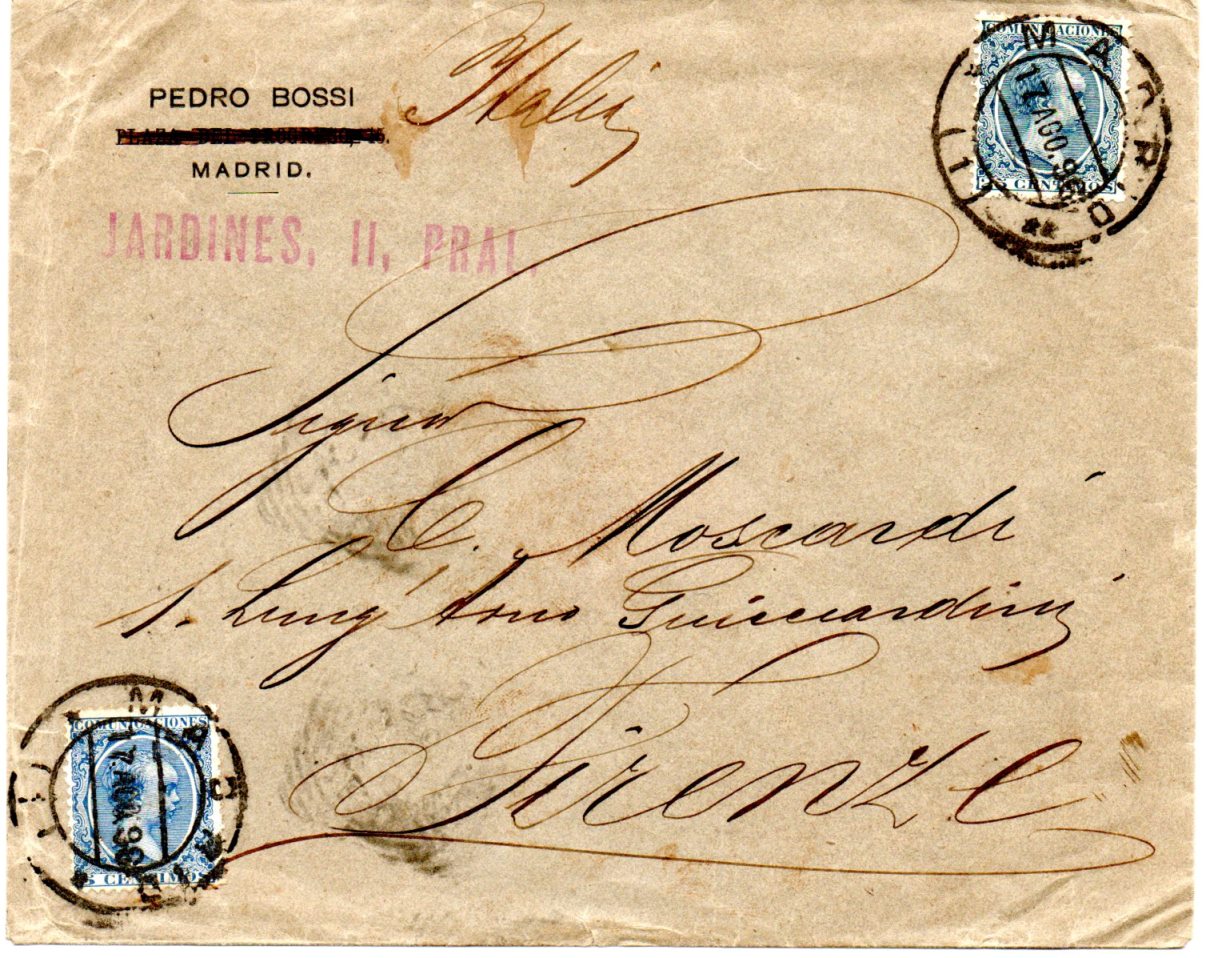 PEDRO BOSSI
PLAZA DEL
MADRID.
JARDINES, 11, PRAL.
Italia
COMUNICACIONES
25 CENTIMOS
MADRID
17.AGO.96
Signor
C. Moscardi
1. Lung' Arno Guicciardini
Firenze
COMUNICACIONES
25 CENTIMOS
MADRID
17.AGO.96